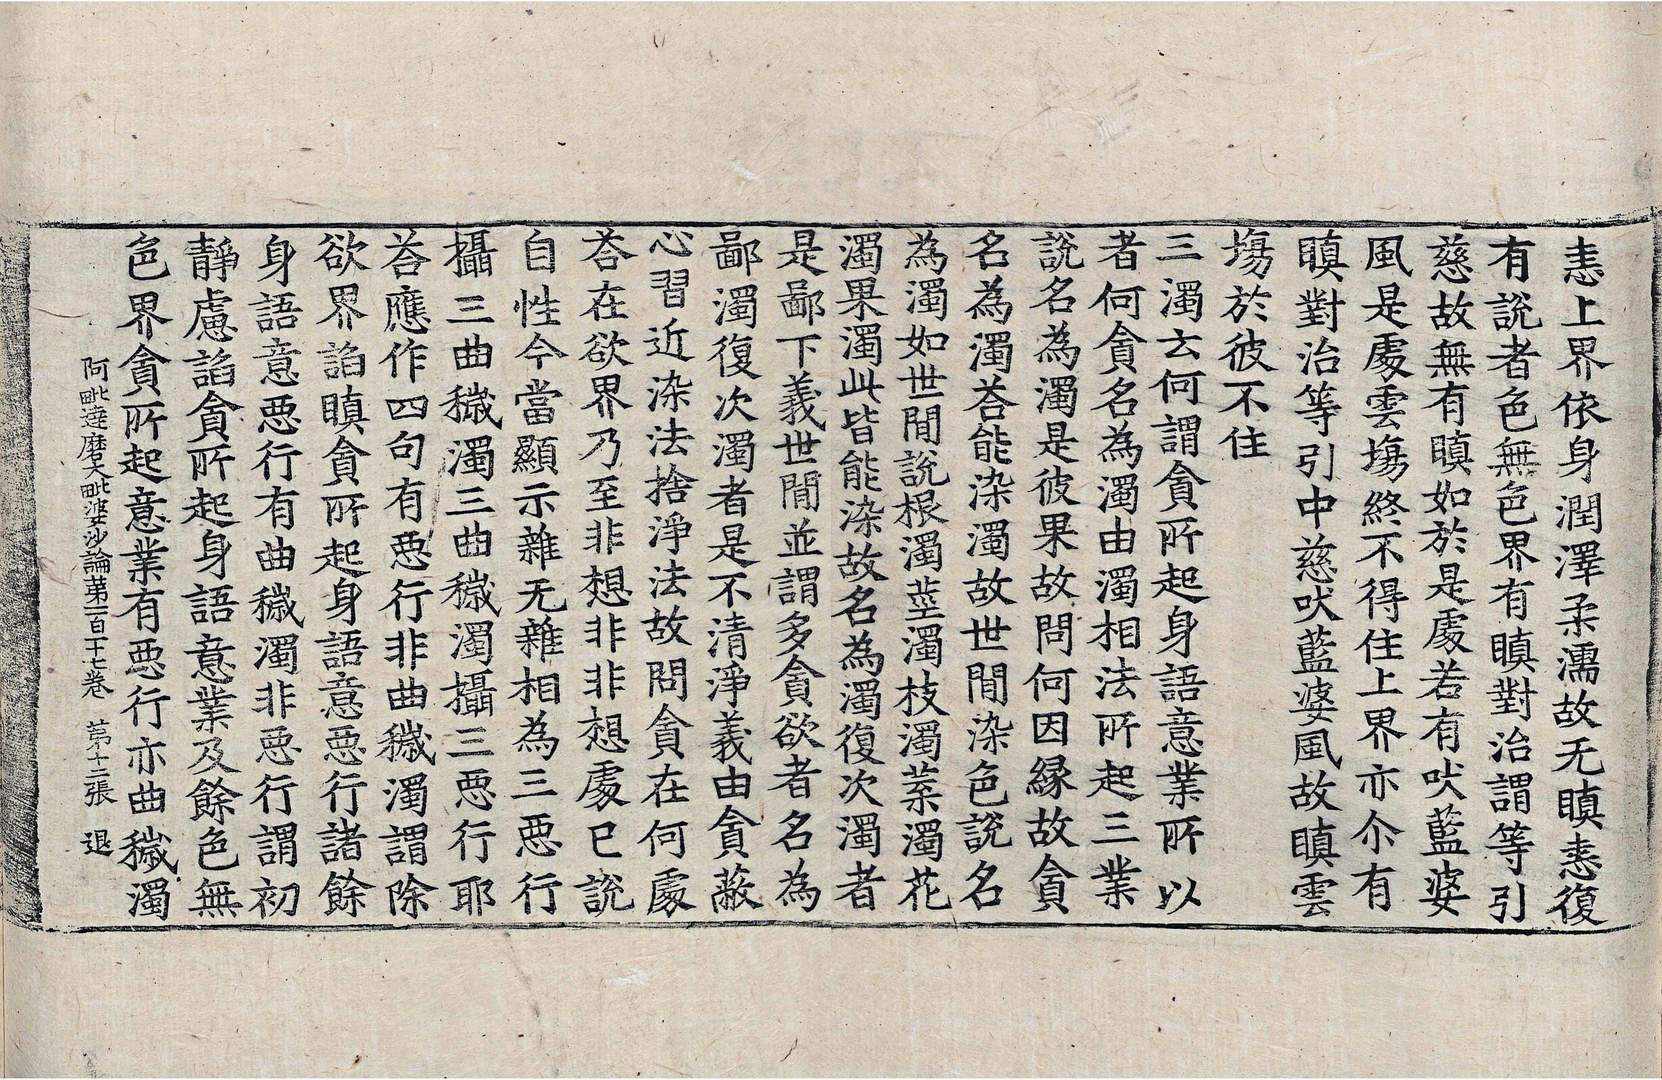 恚上界依身潤澤柔濡故无瞋恚復
有說者色無色界有瞋對治謂等引
慈故無有瞋如於是處若有吠藍婆
風是處雲塲終不得住上界亦尒有
瞋對治等引中慈吠藍婆風故瞋雲
塲於彼不住
三濁云何謂貪所起身語意業所以
者何貪名為濁由濁相法所起三業
說名為濁是彼果故問何因緣故貪
名為濁荅能染濁故世間染色說名
為濁如世間說根濁莖濁枝濁葉濁花
濁果濁此皆能染故名為濁復次濁者
是鄙下義世間並謂多貪欲者名為
鄙濁復次濁者是不清淨義由貪蔽
心習近染法捨淨法故問貪在何處
荅在欲界乃至非想非非想處已說
自性今當顯示雜无雜相為三惡行
攝三曲穢濁三曲穢濁攝三惡行耶
荅應作四句有惡行非曲穢濁謂除
欲界諂瞋貪所起身語意惡行諸餘
身語意惡行有曲穢濁非惡行謂初
靜慮諂貪所起身語意業及餘色無
色界貪所起意業有惡行亦曲穢濁
阿毗達磨大毗婆沙論第一百一十七卷 第十二張 退